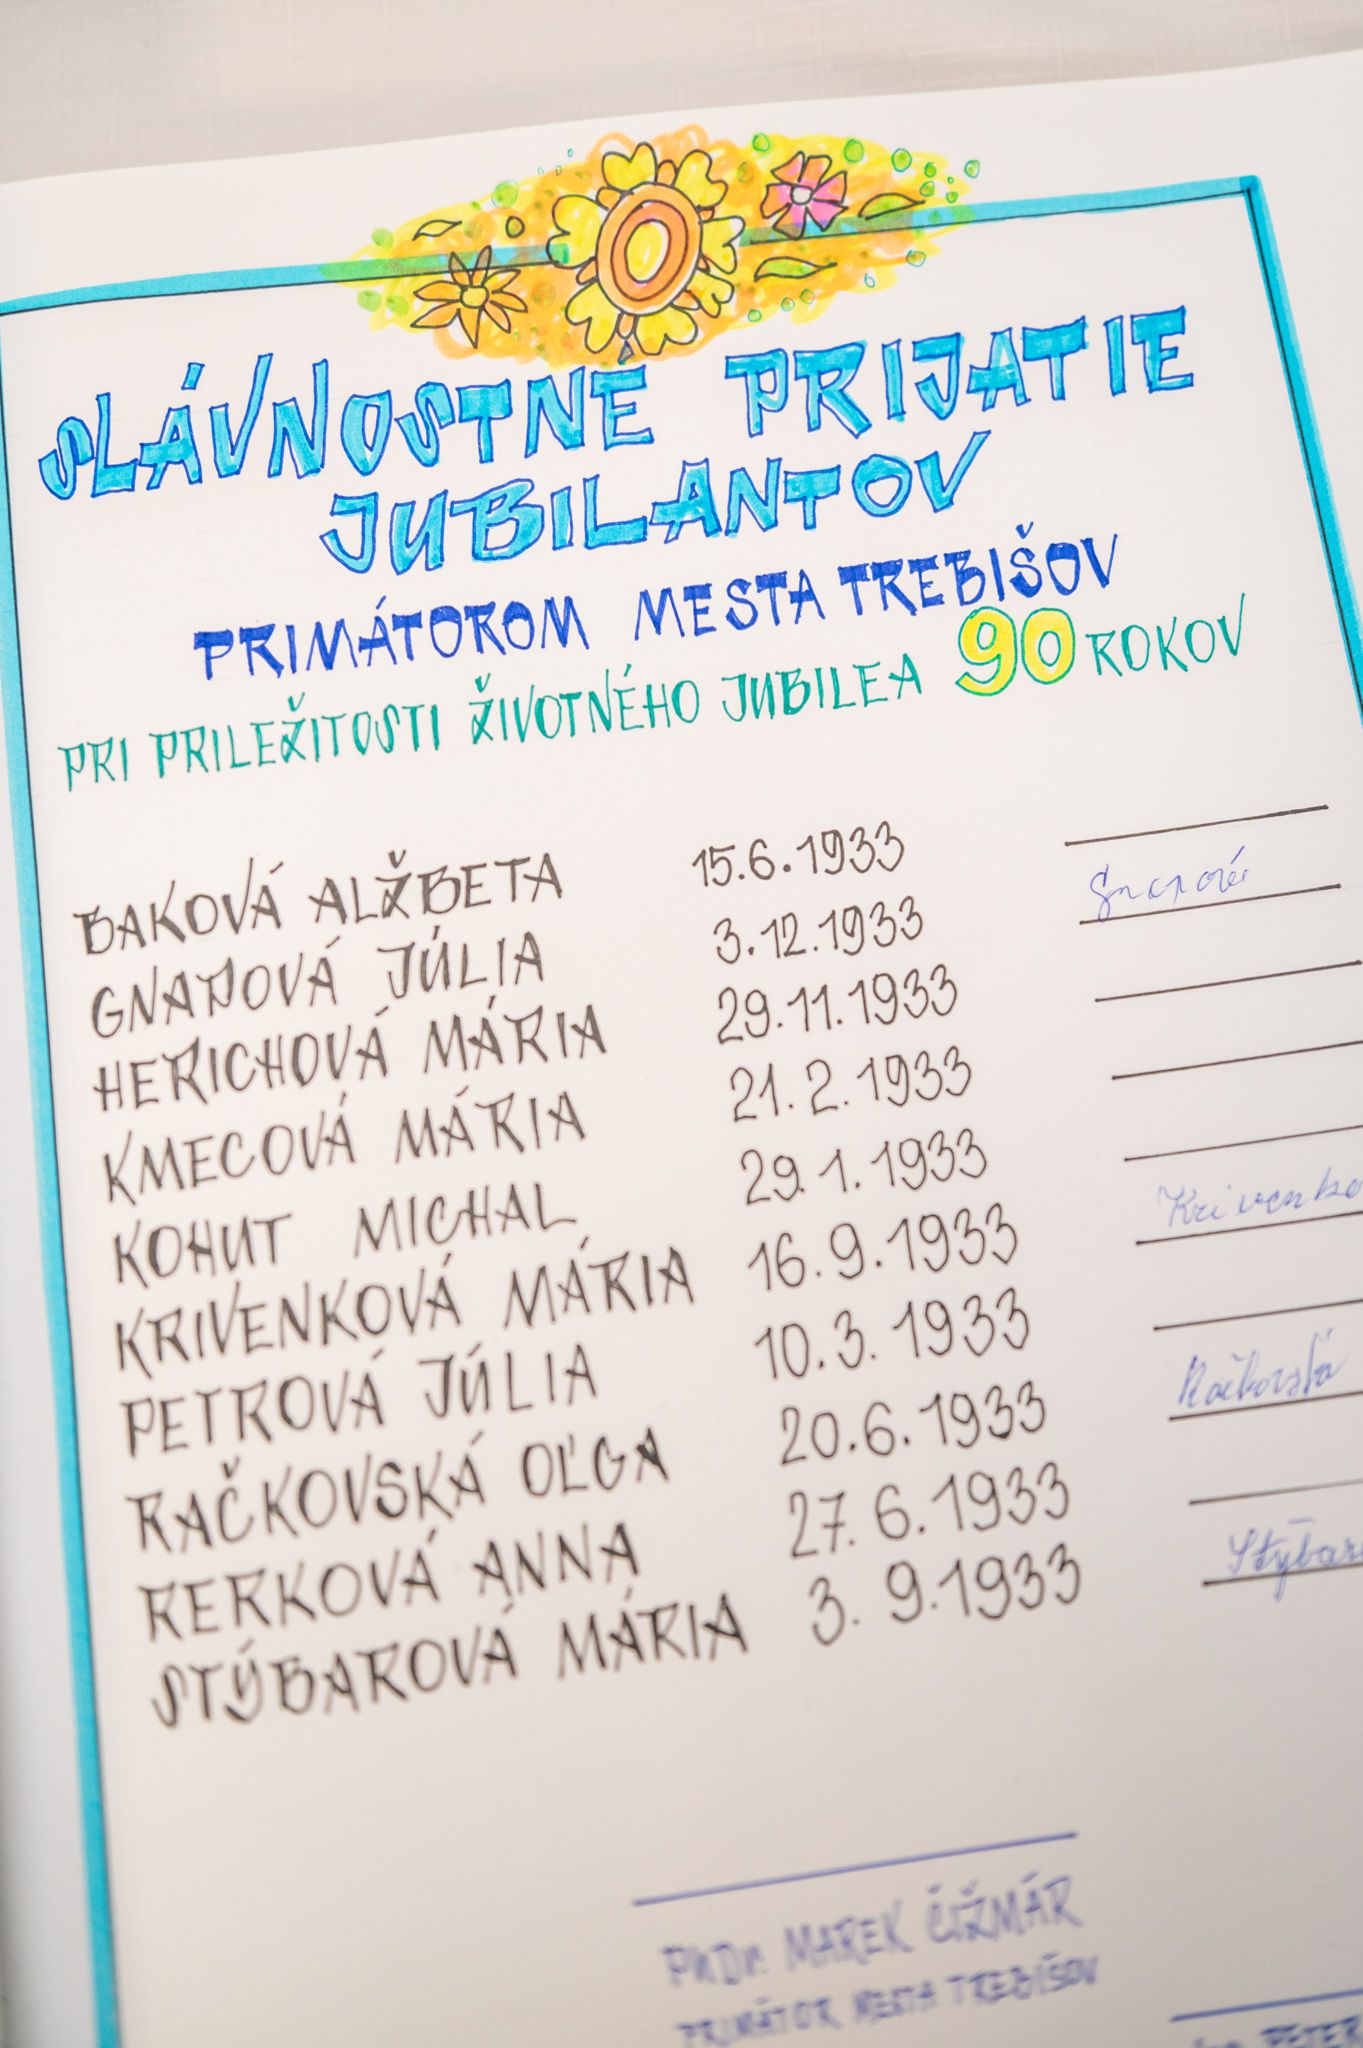 SLÁVNOSTNÉ PRIJATIE
JUBILANTOV
PRIMÁTOROM MESTA TREBIŠOV
PRI PRILEŽITOSTI ŽIVOTNÉHO JUBILEA 90 ROKOV
BAKOVÁ ALŽBETA 15.6.1933
GNAPOVÁ JÚLIA 3.12.1933 Gnapová
HERICHOVÁ MÁRIA 29.11.1933
KMECOVÁ MÁRIA 21.2.1933
KOHUT MICHAL 29.1.1933
KRIVENKOVÁ MÁRIA 16.9.1933 Krivenko
PETROVÁ JÚLIA 10.3.1933
RAČKOVSKÁ OĽGA 20.6.1933 Račkovská
RERKOVÁ ANNA 27.6.1933
STÝBAROVÁ MÁRIA 3.9.1933 Stýbar
PhDr. MAREK ČIŽMÁR
PRIMÁTOR MESTA TREBIŠOV
PETER